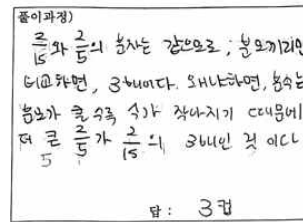 풀이과정)
2/15 와 2/5의 분자는 같으므로, 분모끼리만
비교하면, 3배이다. 왜냐하면, 분수는
분모가 클수록 수가 작아지기 때문에
더 큰 2/5가 2/15의 3배인 것이다
답 : 3컵